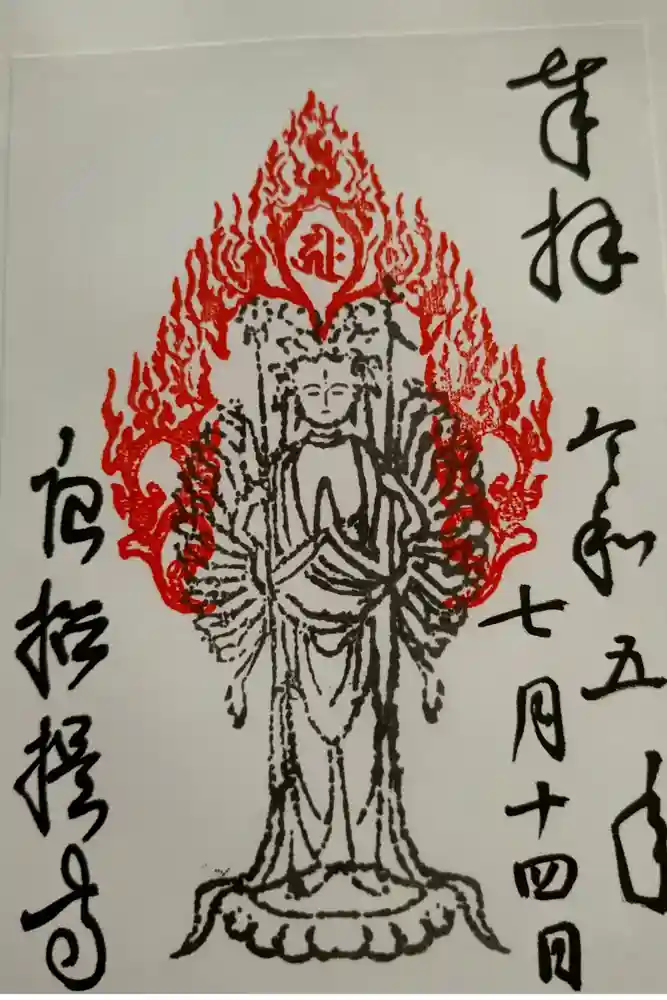 奉拝
令和五年
七月十四日
唐招提寺